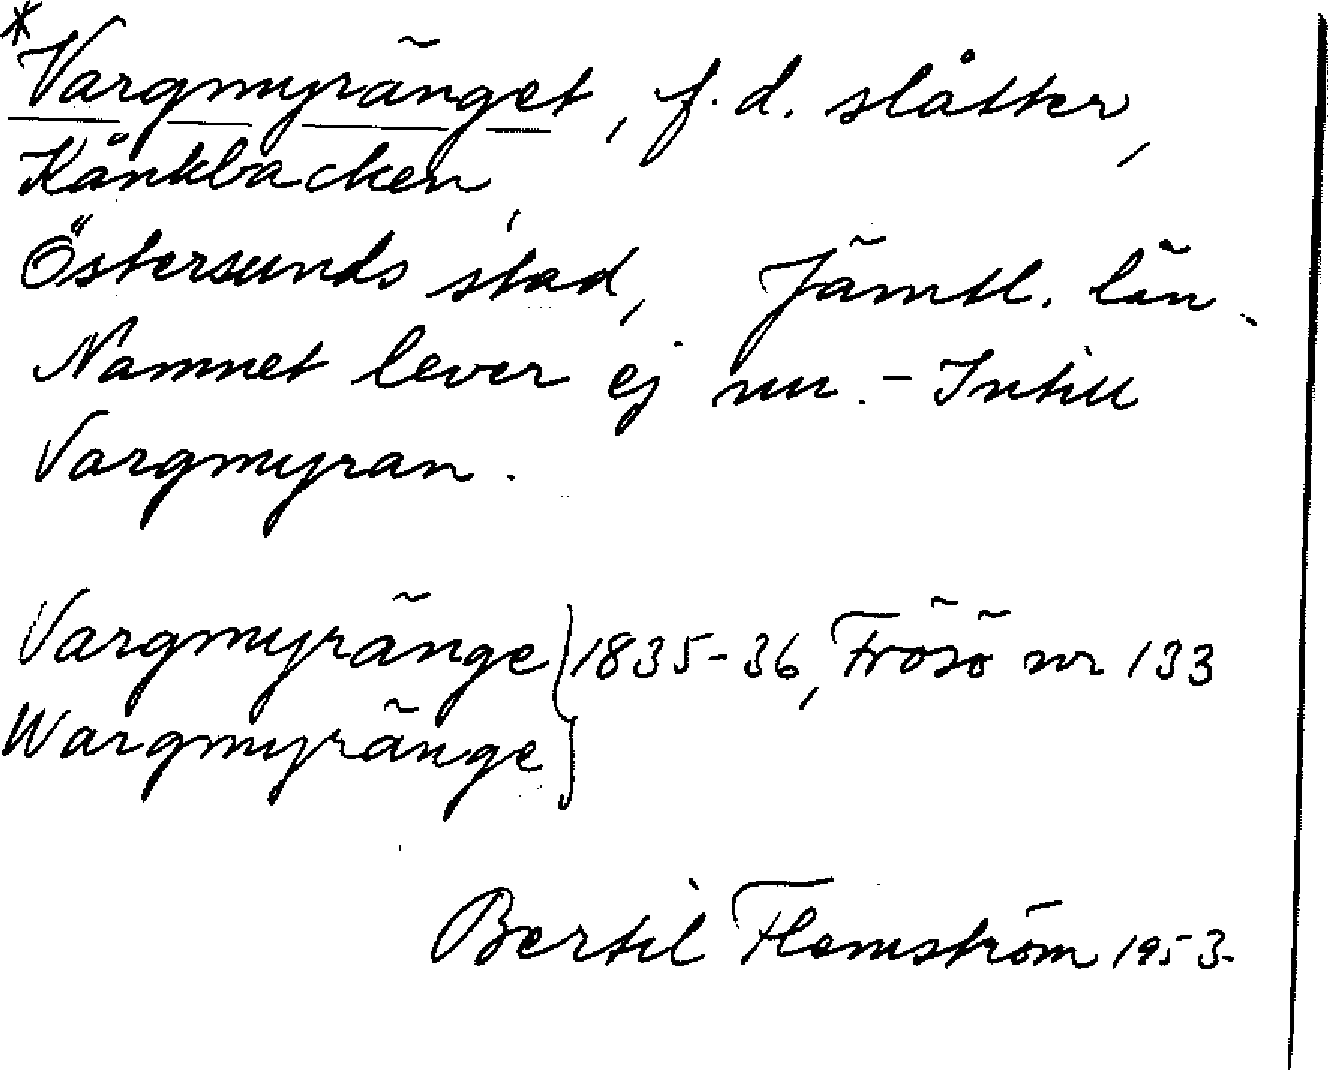 *Vargmyränget, f.d. slåtter,
Kånkbacken,
Östersunds stad, Jämtl. län.
Namnet lever ej nu. - Intill
Vargmyran.
Vargmyränge } 1835-36, Frösö nr 133
Wargmyränge
Bertil Flemström 1953.